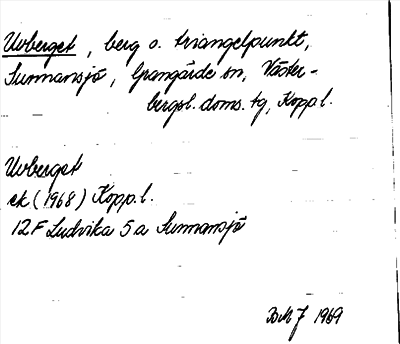 Uvberget, berg o. triangelpunkt,
Sunnansjö, Grangärde sn, Väster-
bergsl. doms. tg, Kopp.l.
Uvberget
ek (1968) Kopp.l.
12F Ludvika 5a Sunnansjö
1969